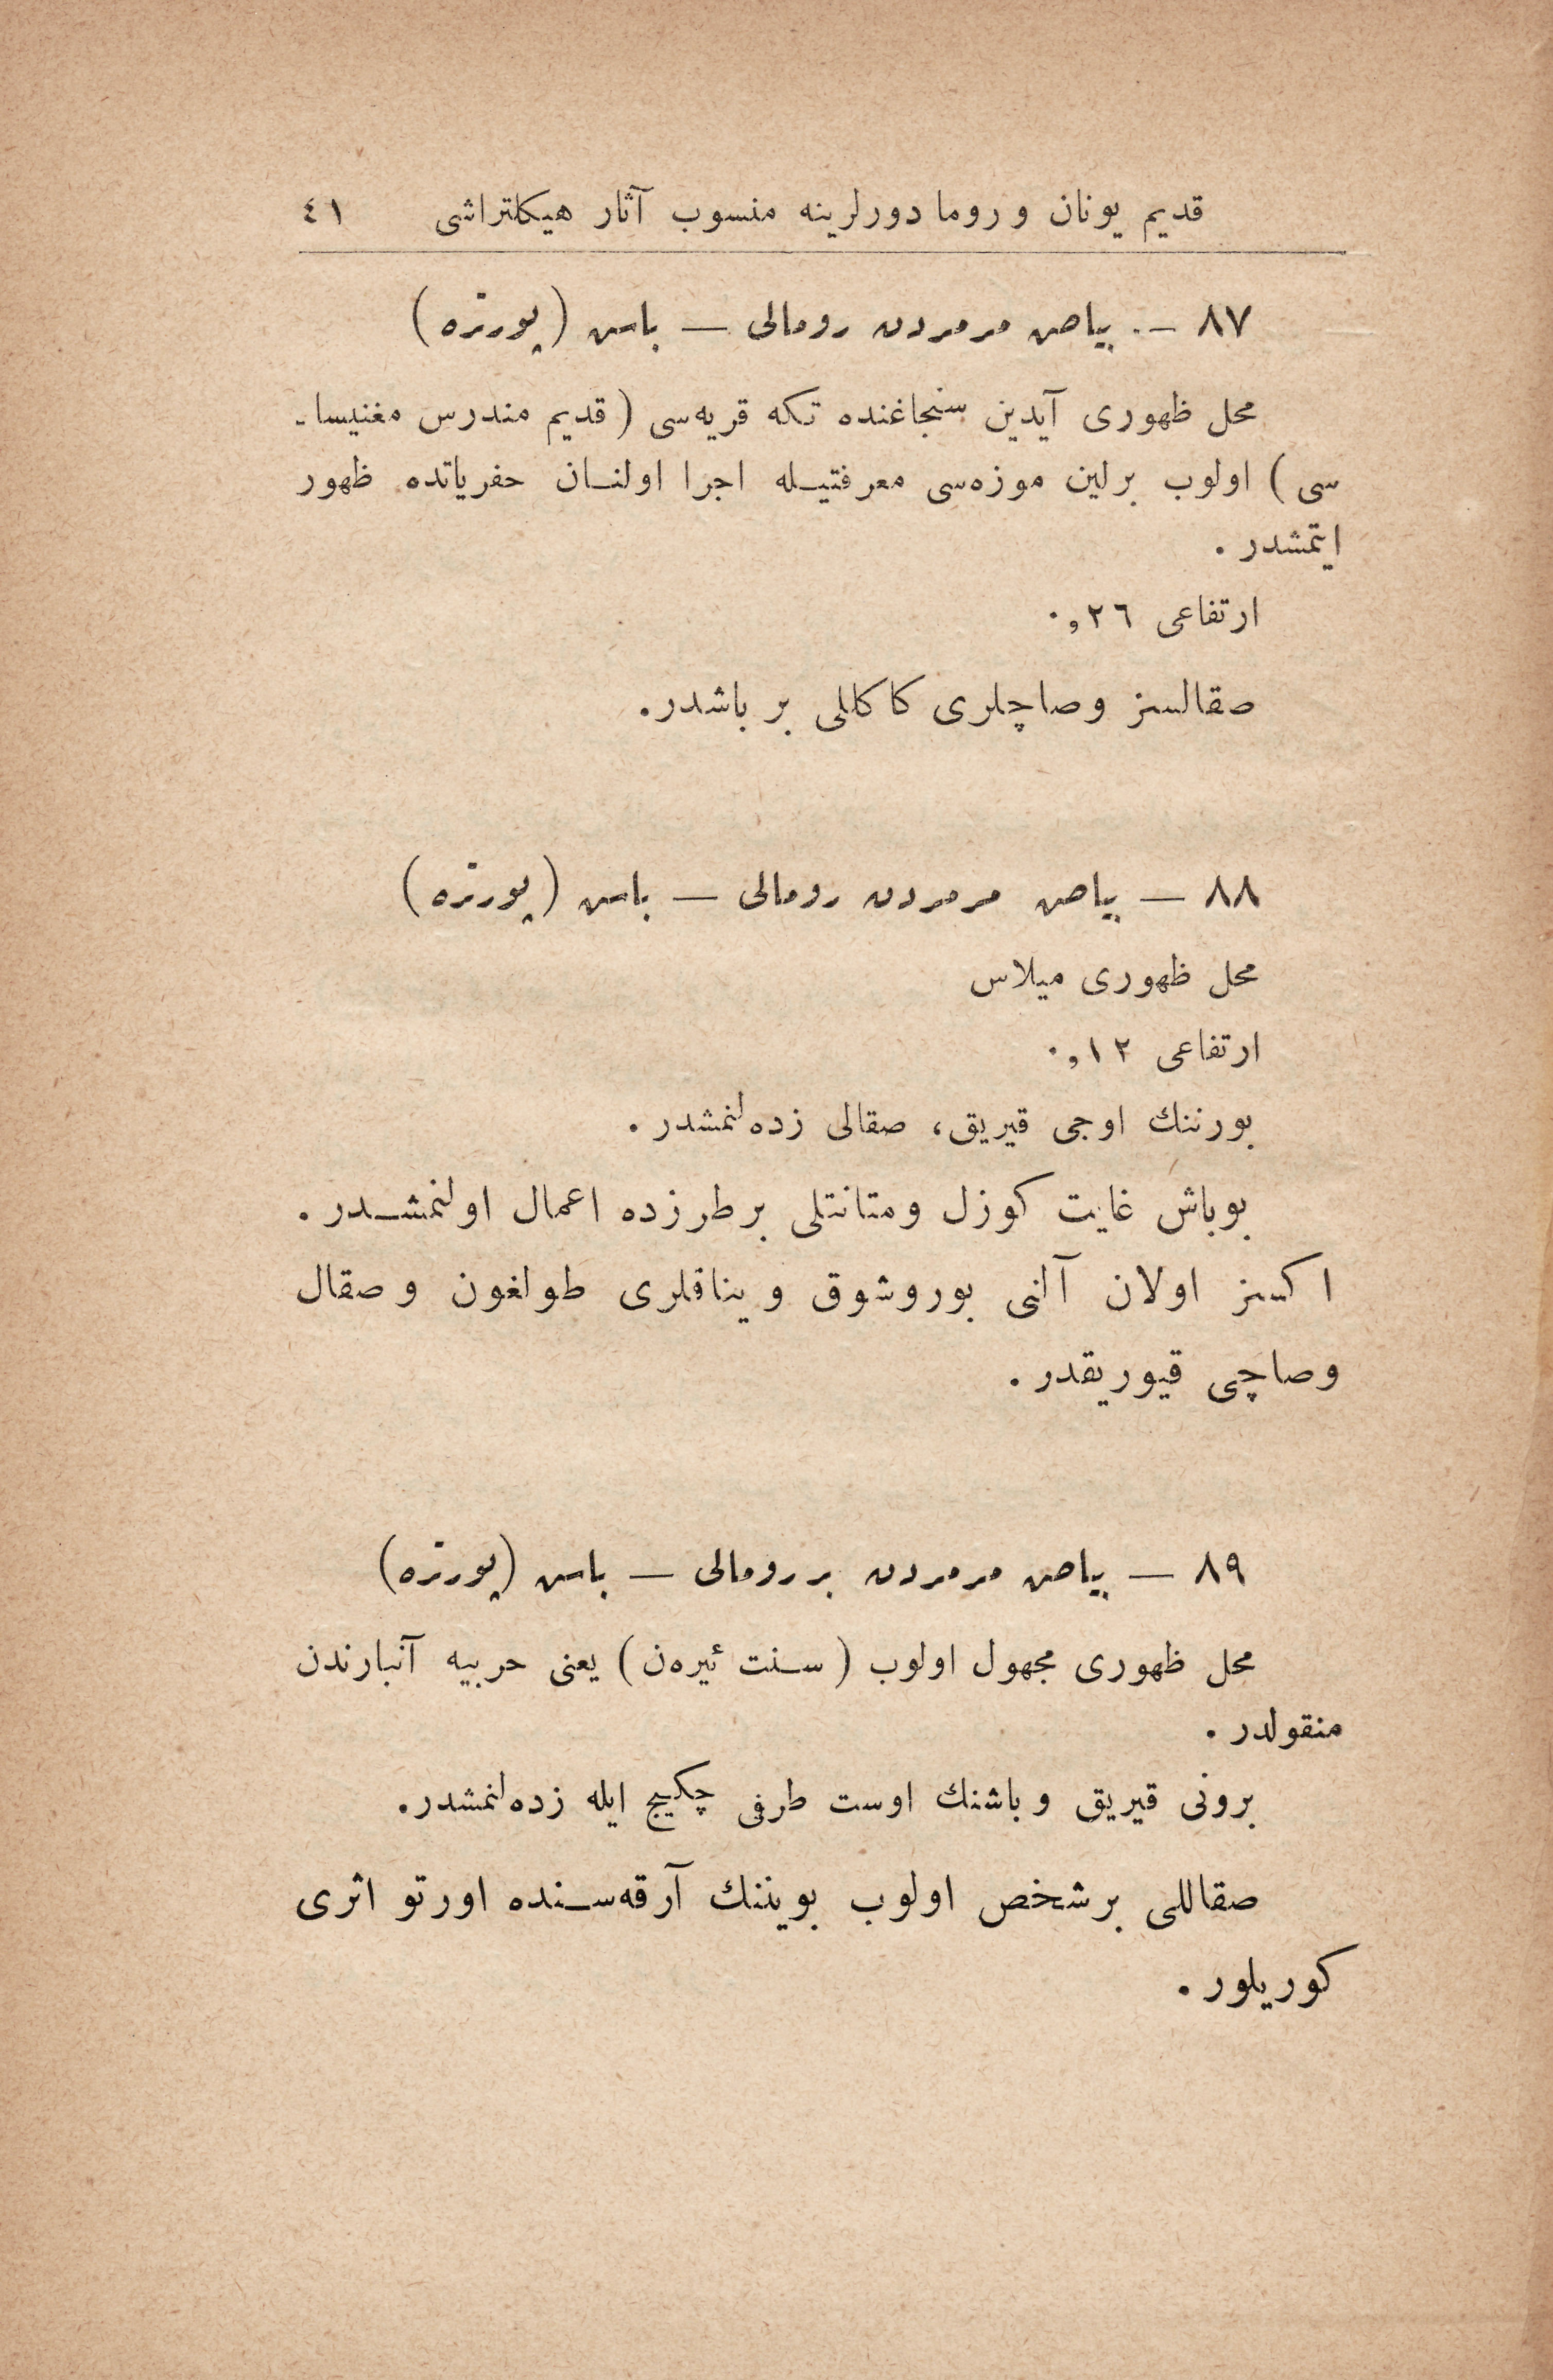 قديم يونان و روما دورلرينه منسوب آثار هيكلتراشى ٤١
٨٧ — بياض مرمردن رومالى — باش (پورتره)
محل ظهورى آيدين سنجاغنده تكه قريه‌سى ( قديم مندرس مغنيسا-
سى ) اولوب برلين موزه‌سى معرفتيله اجرا اولنان حفرياتده ظهور
ايتمشدر .
ارتفاعى ٠,٢٦
صقالسز وصاچلرى كاكللى بر باشدر.
٨٨ — بياض مرمردن رومالى — باش (پورتره)
محل ظهورى ميلاس
ارتفاعى ٠,١٢
بورننك اوجى قيريق، صقالى زده‌لنمشدر .
بوباش غايت كوزل ومتانتلى برطرزده اعمال اولنمشدر .
اكسز اولان آلنى بوروشوق و يناقلرى طولغون وصقال
وصاچى قيوريقدر .
٨٩ — بياض مرمردن بررومالى — باش (پورتره)
محل ظهورى مجهول اولوب ( سنت ئيره‌ن ) يعنى حربيه آنبارندن
منقولدر .
برونى قيريق و باشنك اوست طرفى چكيج ايله زده‌لنمشدر.
صقاللى برشخص اولوب بويننك آرقه‌سنده اورتو اثرى
كوريلور .